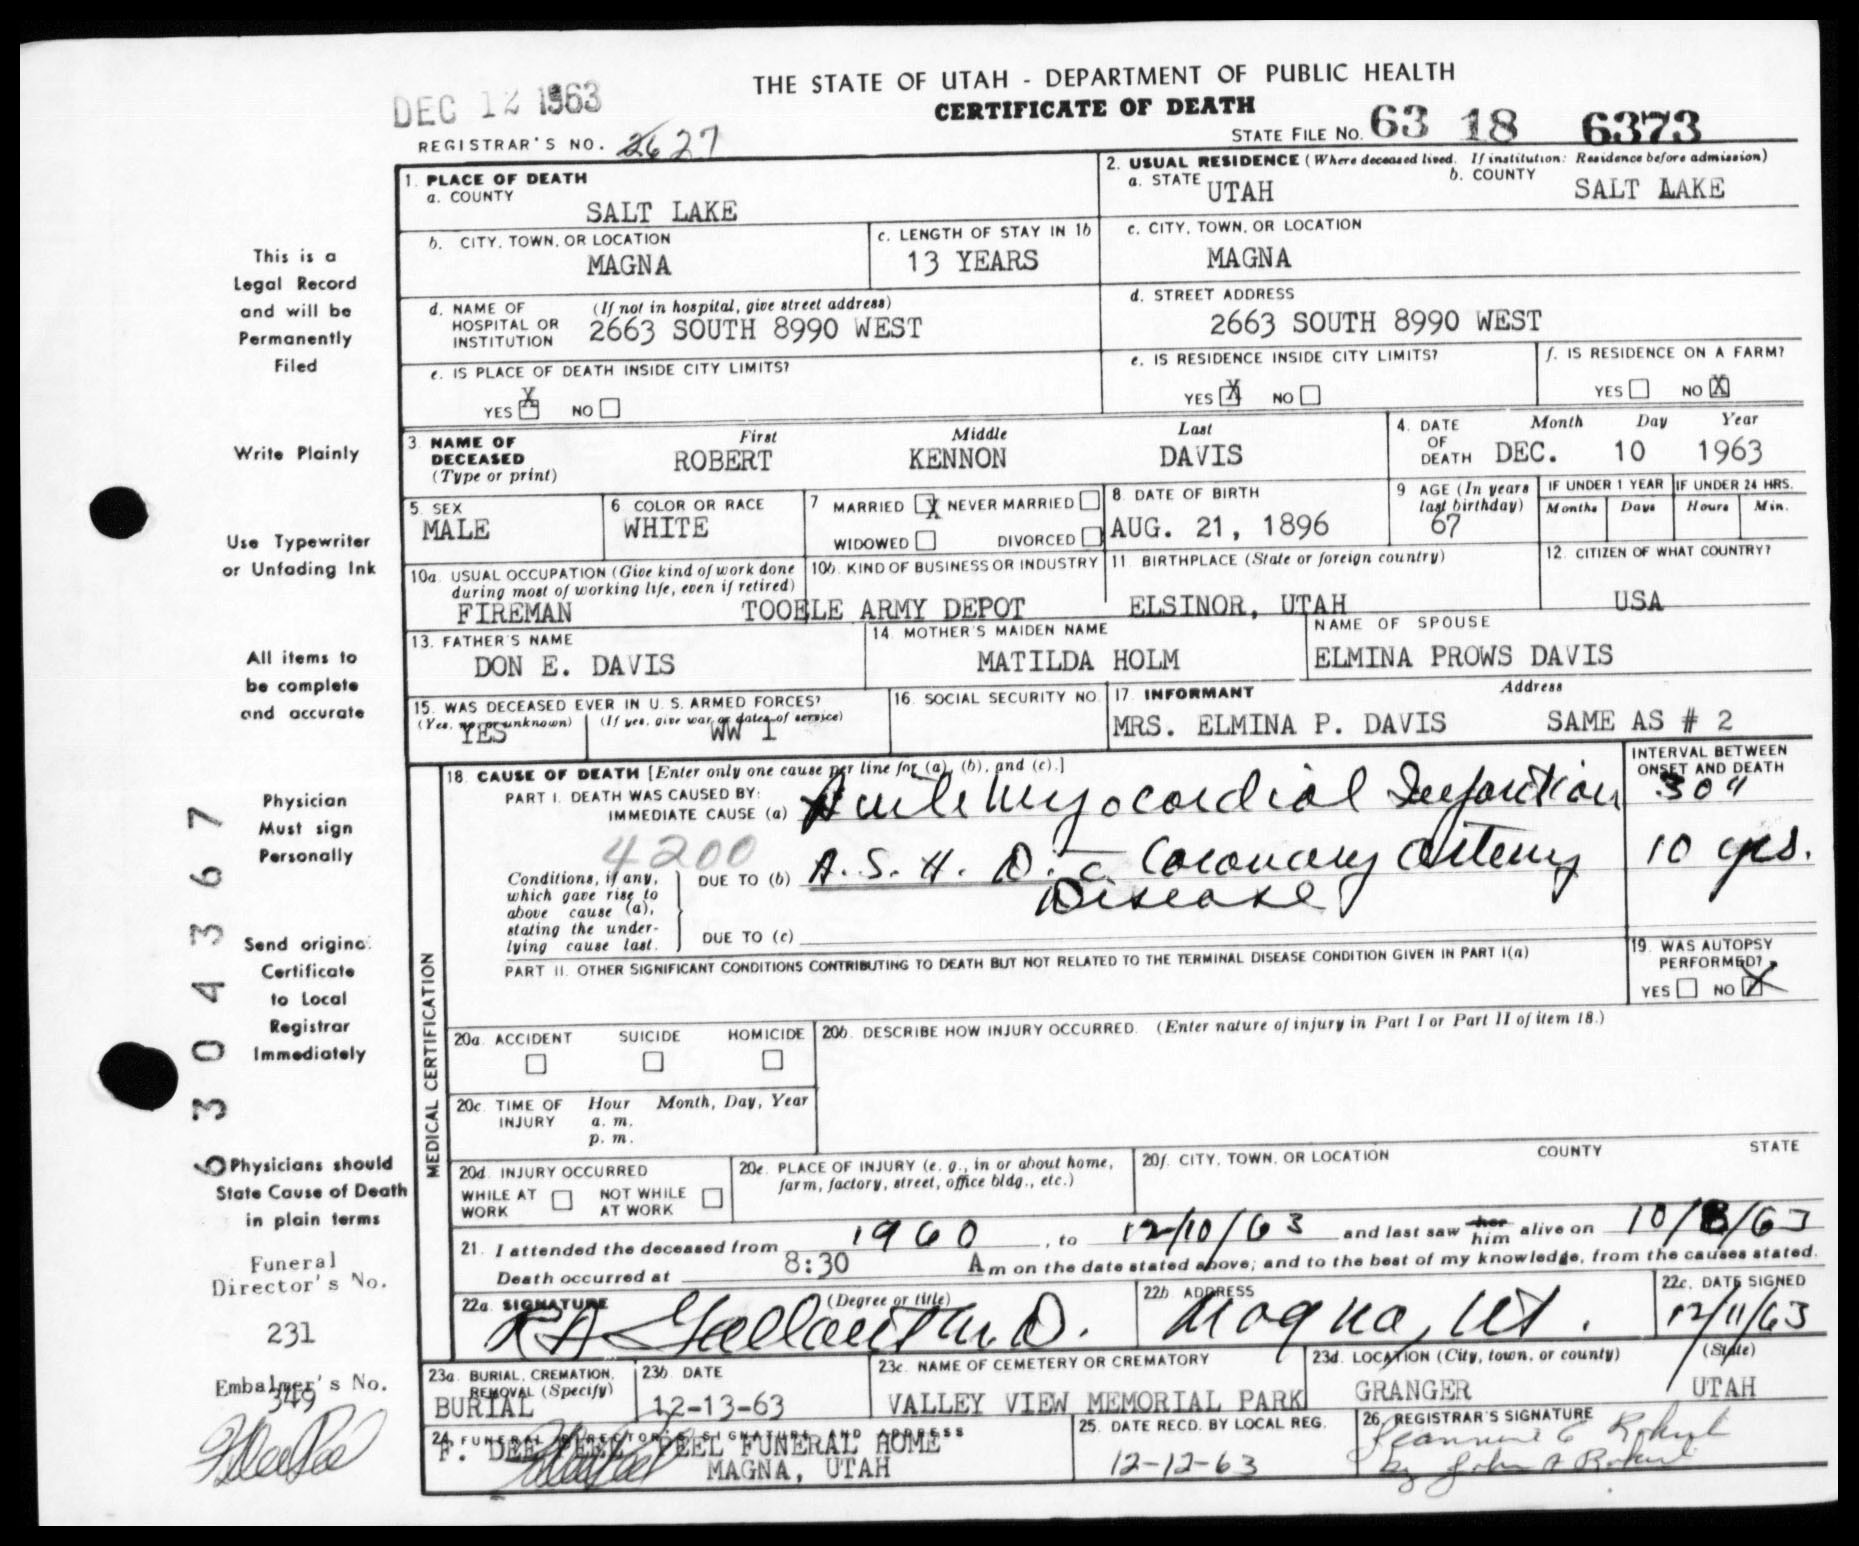 THE STATE OF UTAH - DEPARTMENT OF PUBLIC HEALTH
DEC 12 1963
CERTIFICATE OF DEATH
REGISTRAR'S NO. 2627
STATE FILE NO. 63 18 6373
1. PLACE OF DEATH
a. COUNTY
SALT LAKE
2. USUAL RESIDENCE (Where deceased lived. If institution: Residence before admission)
a. STATE UTAH b. COUNTY SALT LAKE
b. CITY, TOWN, OR LOCATION
MAGNA
c. LENGTH OF STAY IN 1b
13 YEARS
c. CITY, TOWN, OR LOCATION
MAGNA
d. NAME OF HOSPITAL OR INSTITUTION (If not in hospital, give street address)
2663 SOUTH 8990 WEST
d. STREET ADDRESS
2663 SOUTH 8990 WEST
e. IS PLACE OF DEATH INSIDE CITY LIMITS?
YES X NO
e. IS RESIDENCE INSIDE CITY LIMITS?
YES X NO
f. IS RESIDENCE ON A FARM?
YES NO X
3. NAME OF DECEASED (Type or print)
First Middle Last
ROBERT KENNON DAVIS
4. DATE OF DEATH Month Day Year
DEC. 10 1963
5. SEX
MALE
6 COLOR OR RACE
WHITE
7 MARRIED X NEVER MARRIED
WIDOWED DIVORCED
8. DATE OF BIRTH
AUG. 21, 1896
9 AGE (In years last birthday)
67
IF UNDER 1 YEAR IF UNDER 24 HRS.
Months Days Hours Min.
10a. USUAL OCCUPATION (Give kind of work done during most of working life, even if retired)
FIREMAN
10b. KIND OF BUSINESS OR INDUSTRY
TOOELE ARMY DEPOT
11. BIRTHPLACE (State or foreign country)
ELSINOR, UTAH
12. CITIZEN OF WHAT COUNTRY?
USA
13. FATHER'S NAME
DON E. DAVIS
14. MOTHER'S MAIDEN NAME
MATILDA HOLM
NAME OF SPOUSE
ELMINA PROWS DAVIS
15. WAS DECEASED EVER IN U. S. ARMED FORCES?
(Yes, no, or unknown) (If yes, give war or dates of service)
YES WW I
16. SOCIAL SECURITY NO.
17. INFORMANT Address
MRS. ELMINA P. DAVIS SAME AS # 2
MEDICAL CERTIFICATION
18. CAUSE OF DEATH [Enter only one cause per line for (a), (b), and (c).]
INTERVAL BETWEEN ONSET AND DEATH
PART I. DEATH WAS CAUSED BY:
IMMEDIATE CAUSE (a) Acute Myocardial Infarction
4200
Conditions, if any, which gave rise to above cause (a), stating the underlying cause last.
DUE TO (b) A. S. H. D. c Coronary Artery Disease 10 yrs.
DUE TO (c)
PART II. OTHER SIGNIFICANT CONDITIONS CONTRIBUTING TO DEATH BUT NOT RELATED TO THE TERMINAL DISEASE CONDITION GIVEN IN PART I(a)
19. WAS AUTOPSY PERFORMED?
YES NO X
20a. ACCIDENT SUICIDE HOMICIDE
20b. DESCRIBE HOW INJURY OCCURRED. (Enter nature of injury in Part I or Part II of item 18.)
20c. TIME OF INJURY Hour Month, Day, Year
a. m.
p. m.
20d. INJURY OCCURRED
WHILE AT WORK NOT WHILE AT WORK
20e. PLACE OF INJURY (e. g., in or about home, farm, factory, street, office bldg., etc.)
20f. CITY, TOWN, OR LOCATION COUNTY STATE
21. I attended the deceased from 1960, to 12/10/63 and last saw her him alive on 10/8/63
Death occurred at 8:30 A m on the date stated above; and to the best of my knowledge, from the causes stated.
22a. SIGNATURE (Degree or title)
RA Gallant M.D.
22b. ADDRESS
Magna, Ut.
22c. DATE SIGNED
12/11/63
23a. BURIAL, CREMATION, REMOVAL (Specify)
BURIAL
23b. DATE
12-13-63
23c. NAME OF CEMETERY OR CREMATORY
VALLEY VIEW MEMORIAL PARK
23d. LOCATION (City, town, or county) (State)
GRANGER UTAH
24. FUNERAL DIRECTOR'S SIGNATURE AND ADDRESS
F. DEE PEEL PEEL FUNERAL HOME
MAGNA, UTAH
25. DATE RECD. BY LOCAL REG.
12-12-63
26. REGISTRAR'S SIGNATURE
This is a
Legal Record
and will be
Permanently
Filed
Write Plainly
Use Typewriter
or Unfading Ink
All items to
be complete
and accurate
Physician
Must sign
Personally
Send original
Certificate
to Local
Registrar
Immediately
Physicians should
State Cause of Death
in plain terms
Funeral
Director's No.
231
Embalmer's No.
349
6304367